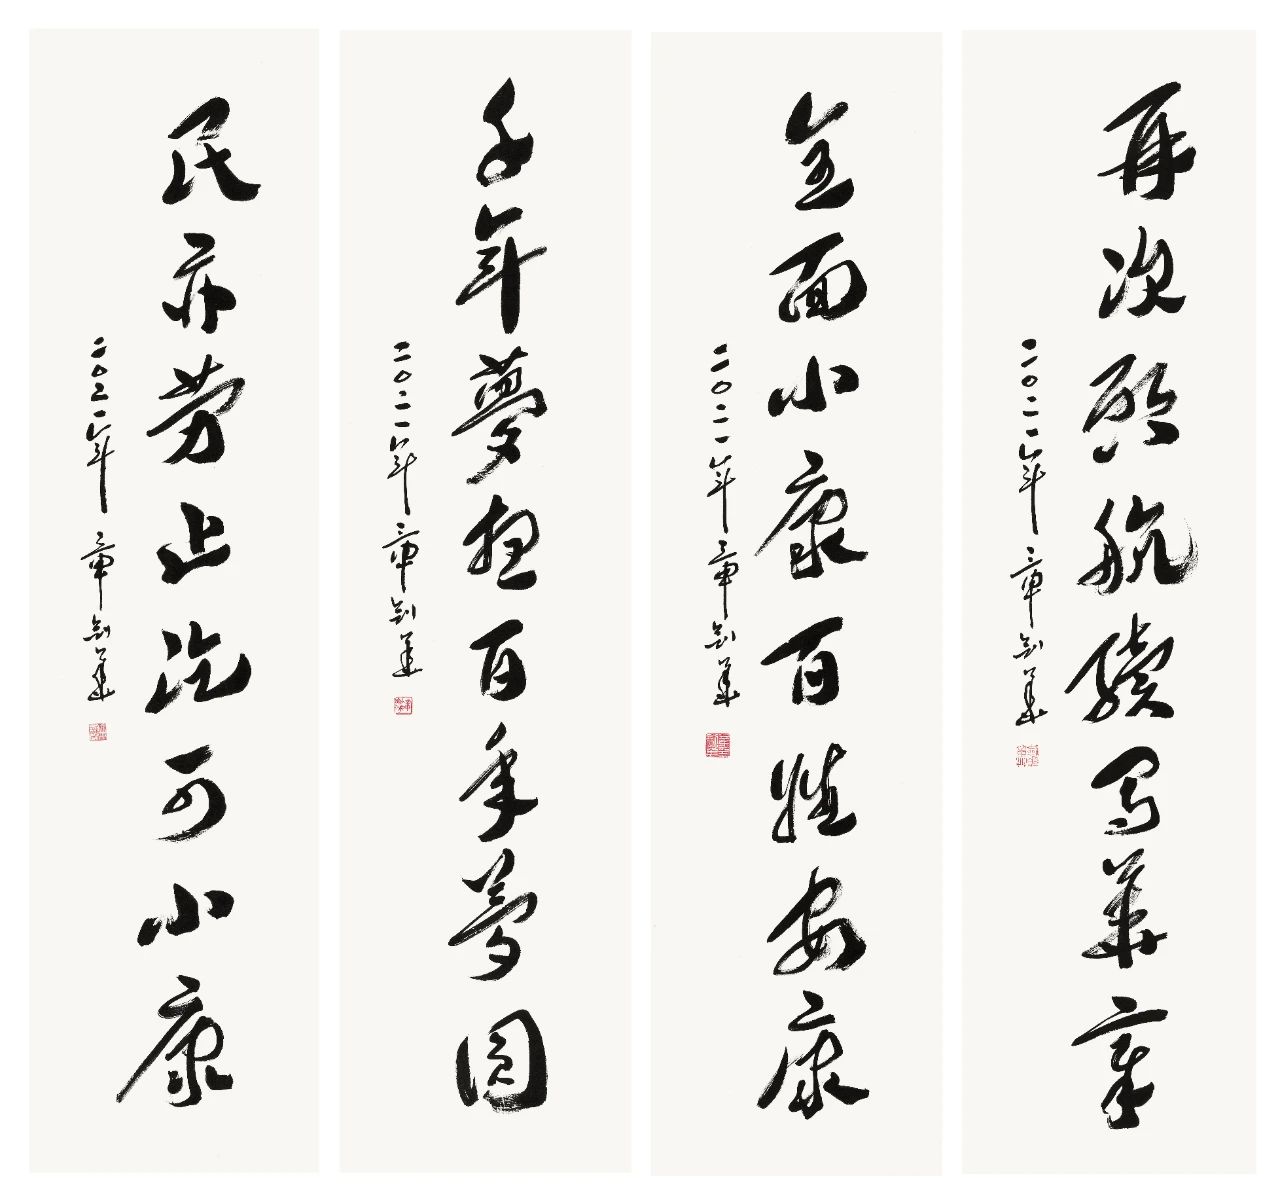 民亦劳止汔可小康
二〇二一年 章剑华
千年夢想百年夢圆
二〇二一年 章剑华
全面小康百姓安康
二〇二一年 章剑华
再次启航續写華章
二〇二一年 章剑华